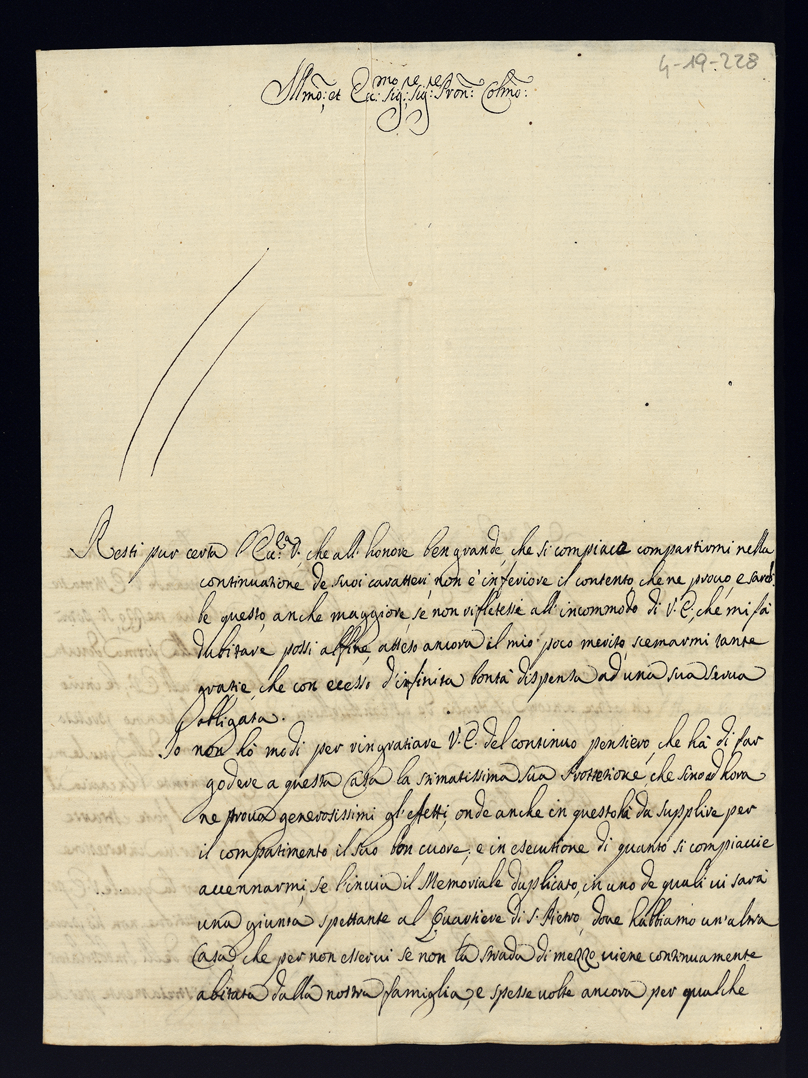 4-19-228
Ill.mo: et Ecc:mo Sig:re Sig:re Pron: Colmo:
Resti pur certa l'Ecc:za V. che all'honore ben grande, che si compiace compartirmi nella
continuazione de suoi caratteri, non è inferiore il contento che ne provo, e sareb:
be questo anche maggiore se non riflettesse all'incommodo di V. E., che mi fà
dubitare possi alfine, atteso ancora il mio poco merito, scemarmi tante
gratie, che con ecesso d'infinita bontà dispensa ad una sua serva
obligata.
Io non hò modi per ringratiare V. E. del continuo pensiero, che hà di far
godere a questa Casa la stimatissima sua Prottezione, che sino ad hora
ne prova generosissimi gl'effetti, onde anche in questo hà da supplire per
il compatimento il suo bon cuore; e in esecutione di quanto si compiacie
accennarmi, se l'invia il Memoriale duplicato, in uno de quali vi sarà
una giunta spettante al Quartiere di S. Pietro, dove habbiamo un'altra
Casa che per non esservi se non la strada di mezzo viene continuamente
abitata dalla nostra famiglia, e spesse volte ancora per qualche